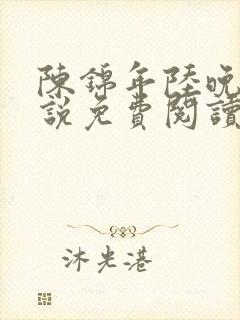 陳錦年陸晚
說免費閱讀
沐光港